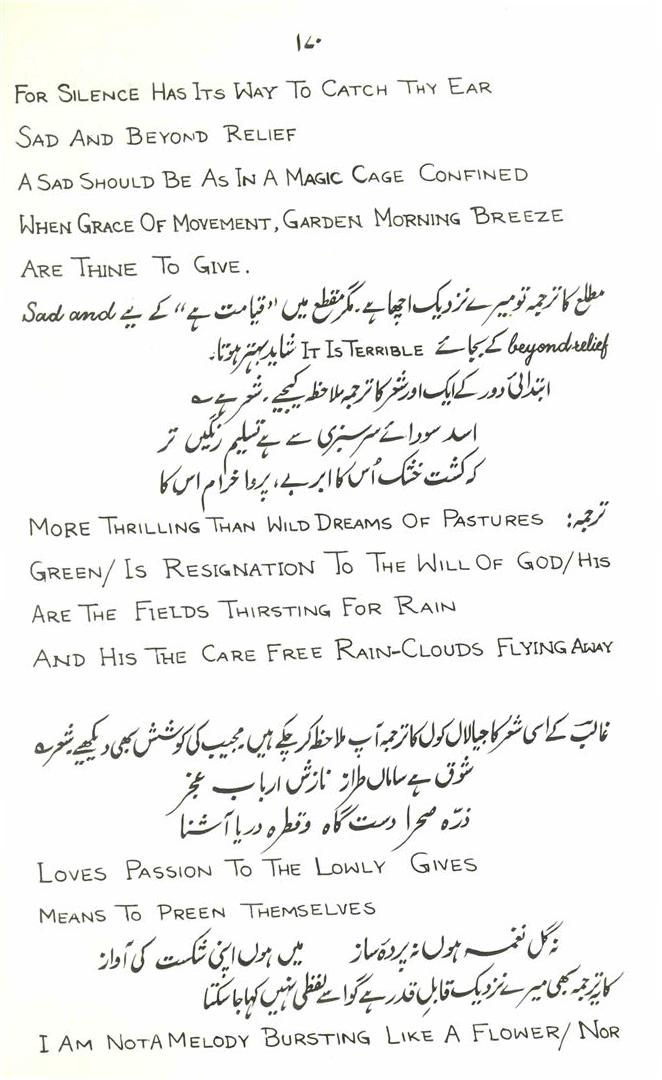 ۱۷۰
FOR SILENCE HAS ITS WAY TO CATCH THY EAR
SAD AND BEYOND RELIEF
A SAD SHOULD BE AS IN A MAGIC CAGE CONFINED
WHEN GRACE OF MOVEMENT, GARDEN MORNING BREEZE
ARE THINE TO GIVE.
مطلع کا ترجمہ تو میرے نزدیک اچھا ہے۔ مگر مقطع میں "قیامت ہے" کے لیے Sad and
beyond relief کے بجائے IT IS TERRIBLE شاید بہتر ہوتا۔
ابتدائی دور کے ایک اور شعر کا ترجمہ ملاحظہ کیجیے۔ شعر ہے ؎
اسد سودائے سرسبزی سے ہے تسلیم رنگیں تر
کہ کشت خشک اُس کا ابر بے پروا خرام اس کا
ترجمہ: MORE THRILLING THAN WILD DREAMS OF PASTURES
GREEN/ IS RESIGNATION TO THE WILL OF GOD/ HIS
ARE THE FIELDS THIRSTING FOR RAIN
AND HIS THE CARE FREE RAIN-CLOUDS FLYING AWAY
غالبؔ کے اسی شعر کا جیالال کول کا ترجمہ آپ ملاحظہ کر چکے ہیں۔ مجیب کی کوشش بھی دیکھیے شعر ہے ؎
شوق ہے ساماں طراز نازش ارباب عجز
ذرّہ صحرا دست گاہ و قطرہ دریا آشنا
LOVES PASSION TO THE LOWLY GIVES
MEANS TO PREEN THEMSELVES
نہ گل نغمہ ہوں نہ پردۂ ساز میں ہوں اپنی شکست کی آواز
کا یہ ترجمہ بھی میرے نزدیک قابلِ قدر ہے گو اسے لفظی نہیں کہا جا سکتا
I AM NOT A MELODY BURSTING LIKE A FLOWER/ NOR